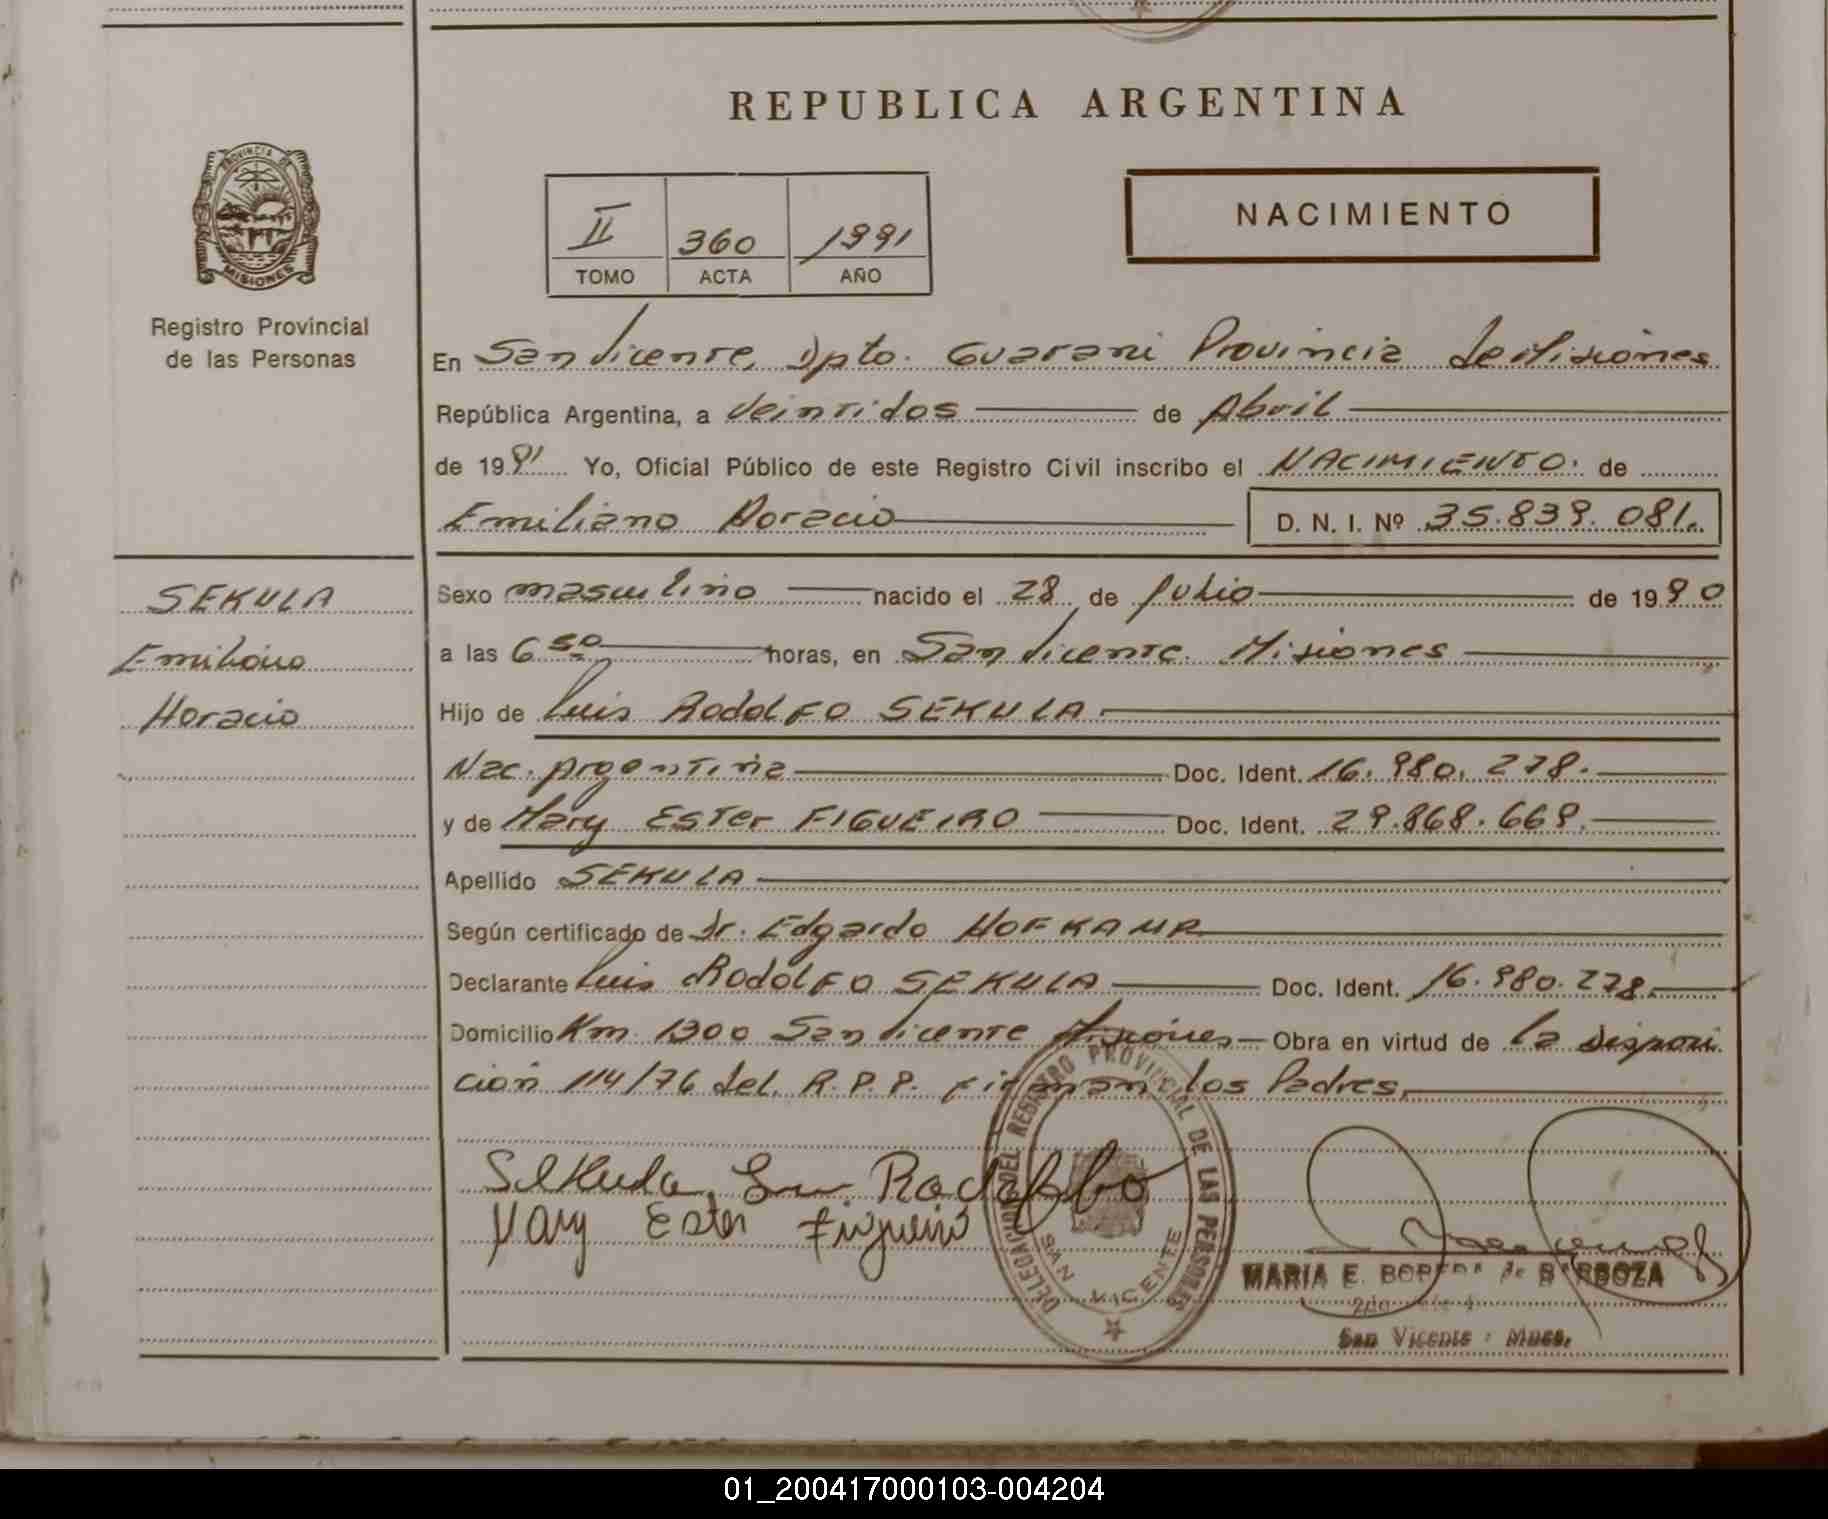 REPUBLICA ARGENTINA
PROVINCIA DE
MISIONES
Registro Provincial
de las Personas
II 360 1991
TOMO ACTA AÑO
NACIMIENTO
En San Vicente, Dpto. Guarani Provincia de Misiones
República Argentina, a Veintidos de Abril
de 1991 Yo, Oficial Público de este Registro Civil inscribo el NACIMIENTO. de
Emiliano Horacio D. N. I. Nº 35.839.081.
SEKULA
Emiliano
Horacio
Sexo masculino nacido el 28 de Julio de 1990
a las 6 50 horas, en San Vicente. Misiones
Hijo de Luis RodolFO SEKULA
Nac. Argentina Doc. Ident. 16.980.278.
y de Mary ESTer FIGUEIRO Doc. Ident. 29.868.669.
Apellido SEKULA
Según certificado de Dr. Edgardo HOFKAMP
Declarante Luis RodolFO SEKULA Doc. Ident. 16.980.278.
Domicilio Km. 1300 San Vicente Misiones Obra en virtud de la disposi
ción 114/76 del. R.P.P. firman los Padres,
Sekula, Luis Rodolfo
Mary Ester Figueiró
DELEGACION DEL REGISTRO PROVINCIAL DE LAS PERSONAS
SAN VICENTE
MARIA E. de BARBOZA
San Vicente - Mnes.
01_200417000103-004204